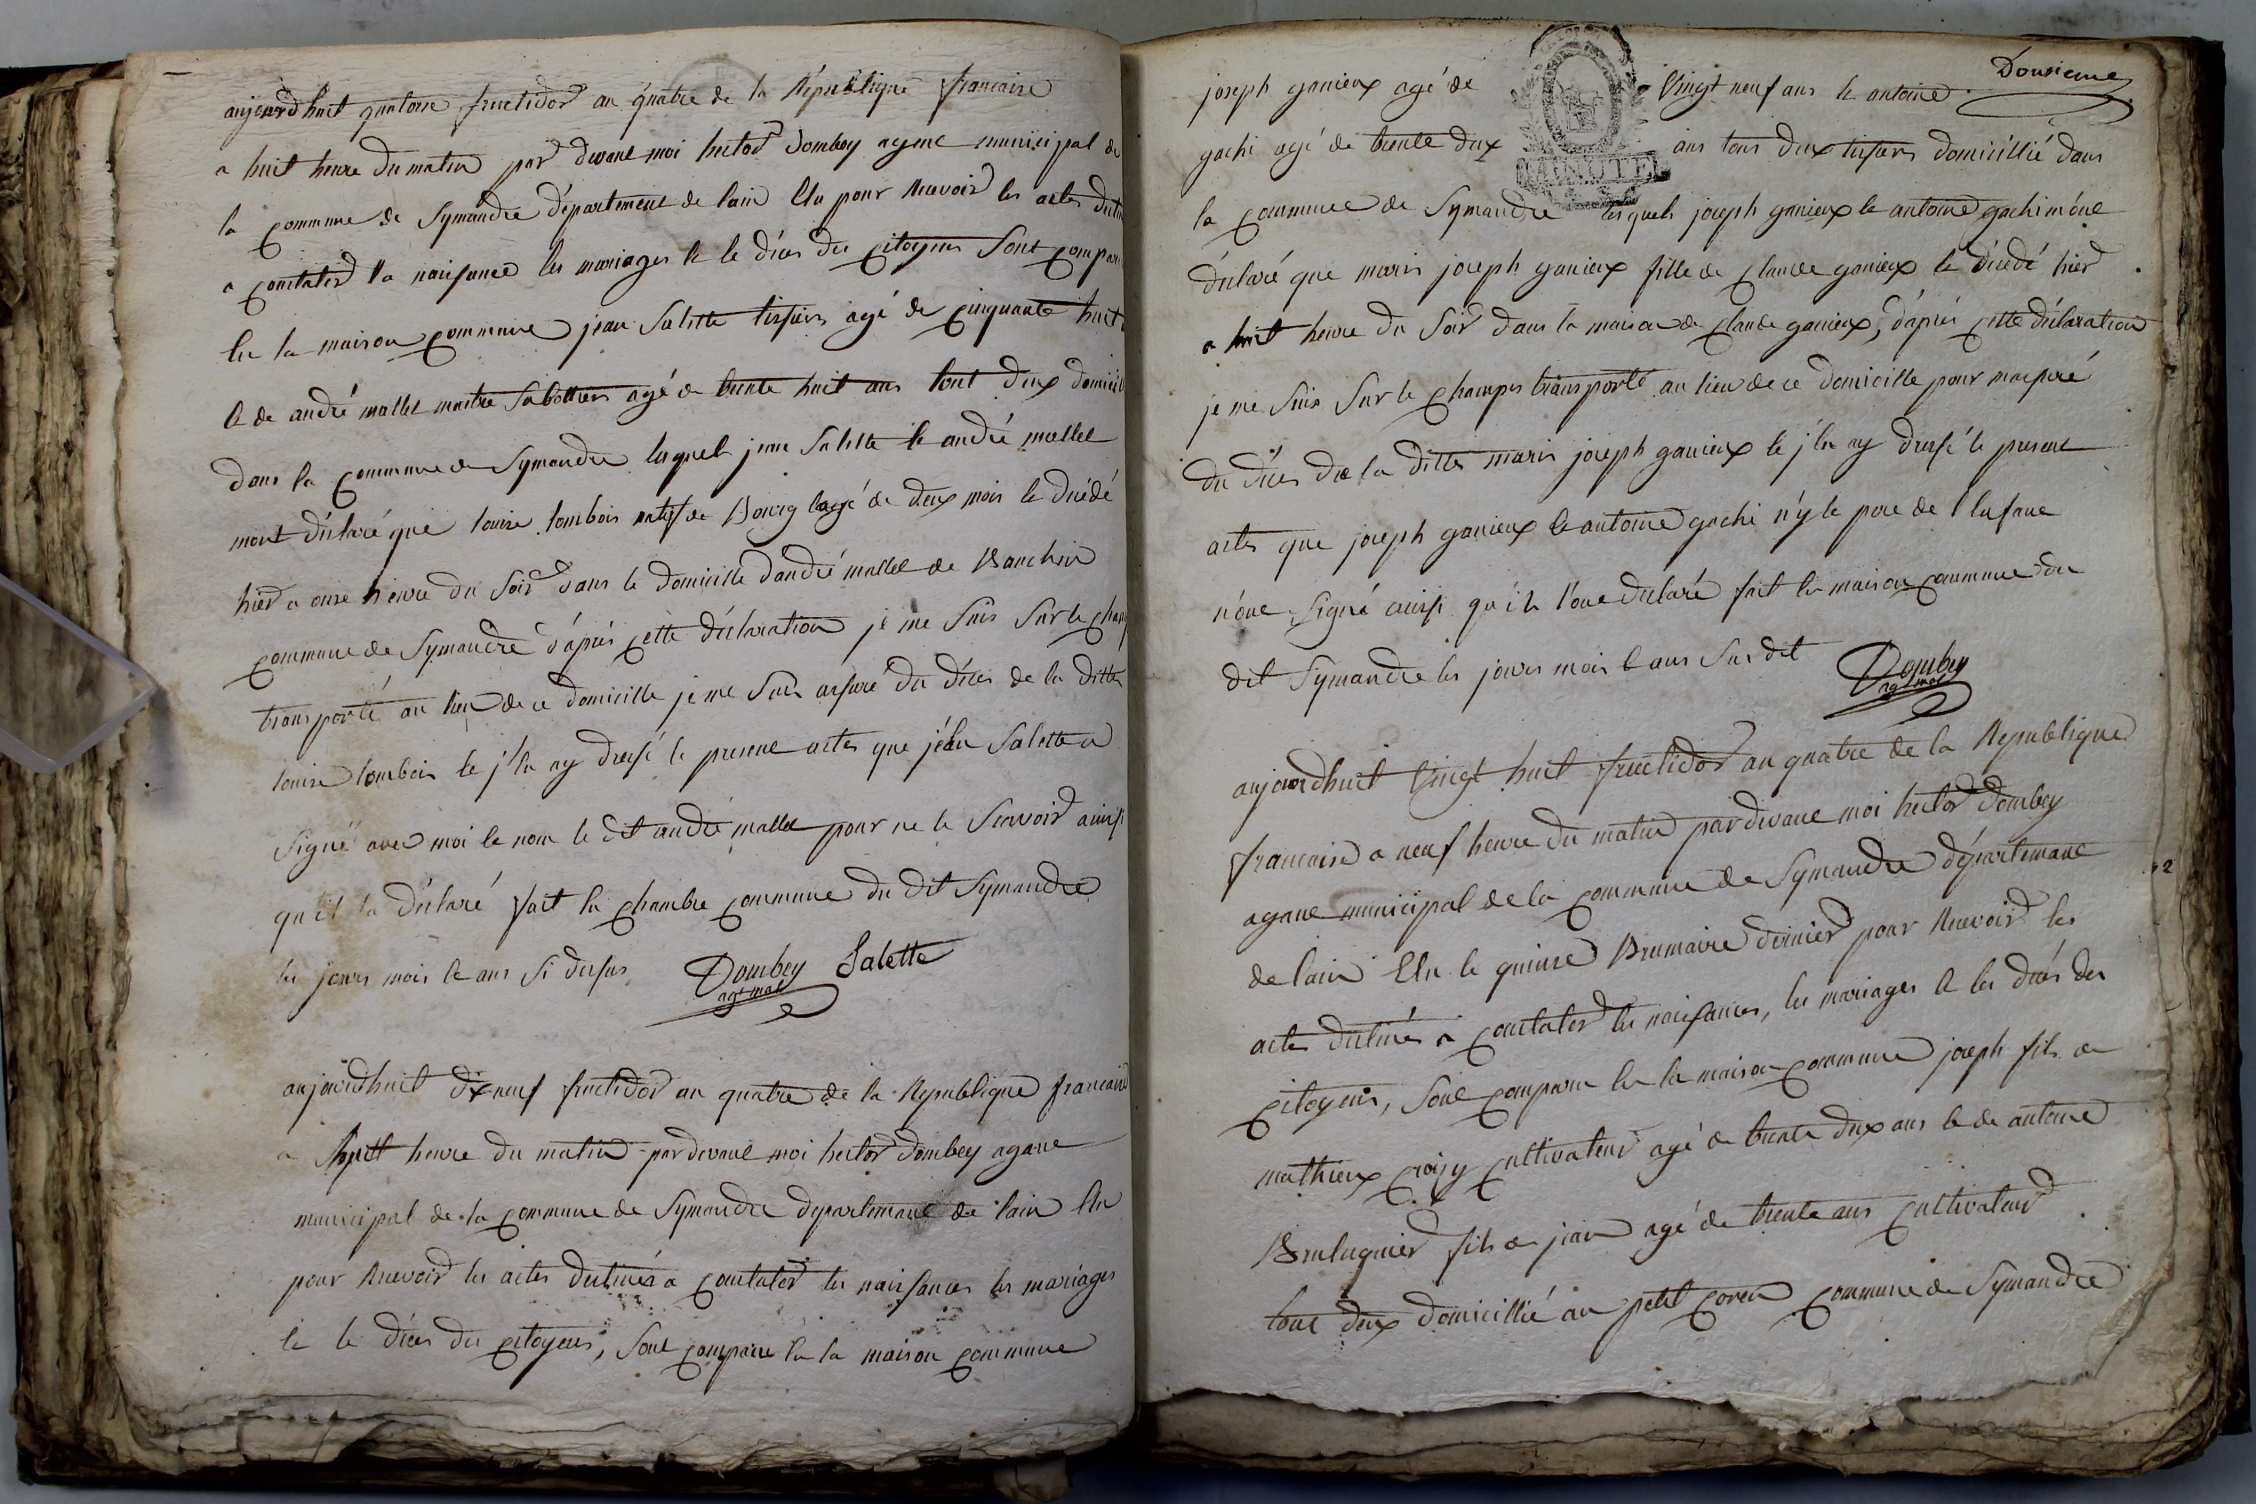 aujourd huit quatorse fructidor an quatre de la République francaise
a huit heure du matin par devant moi hector Dombey agent municipal de
la commune de Symandre département de lain Elu pour Recevoir les actes
a constater la naissance les mariages & le déces des citoyens Sont compar
En la maison commune jean Salette tissier agé de cinquante huit
& de andré mallet maitre Sabottier agé de trente huit ans tout deux domicil
dans la commune de Symandre lesquels jean Salette & andré mallet
mont déclaré que louise lombois natif de Bourg agé de deux mois & décédé
hier a onse heure du Soir dans le domicille dandré mallet de Banchin
commune de Symandre d'après cette déclaration je me Suis Sur le champ
transporté au lieu de ce domicille je me Suis assuré du déces de la ditte
louise lombois & j'En ay dressé le present actes que jéan Salette a
Signé avec moi & non le dit andré mallet pour ne le Scavoir ainsi
qu'il la déclaré fait En chambre commune du dit Symandre
les jours mois & ans Si dessus Dombey agt mal Salette
aujourdhuit dix neuf fructidor an quatre de la Republique francaise
a huit heure du matin par devant moi hector Dombey agant
municipal de la commune de Symandre departemant de lain Elu
pour Recevoir les actes destinés a constater les naissances les mariages
& le déces des citoyens, Sont comparu En la maison commune
Dousieme
joseph ganieux agé de vingt neuf ans & antoine
gachi agé de trente deux ans tous deux tissiers domicillié dans
MINUTE
la commune de Symandre lesquels joseph ganieux & antoine gachi m'ont
déclaré que marie joseph ganieux fille de claude ganieux & décédé hier
a huit heure du Soir dans la maison de claude ganieux, d'après cette déclaration
je me Suis Sur le champs transporté au lieu de ce domicille pour massuré
du déces de la ditte marie joseph ganieux & j'En ay dressé le present
actes que joseph ganieux & antoine gachi n'y le pere de l'Enfant
n'ont Signé ainsi qu'il l'ont déclaré fait En maison commune du
dit Symandre les jours mois & ans Sus dit Dombey agt mal
aujourdhuit vingt huit fructidor an quatre de la Republique
francaise a neuf heure du matin par devant moi hector Dombey
agant municipal de la commune de Symandre départemant
de lain Elu le quinse Brumaire dernier pour Recevoir les
actes destinés a constater les naissances, les mariages & les déces des
citoyens, Sont comparu En la maison commune joseph fils de
mathieux croisy cultivateur agé de trente deux ans & de antoine
Brulaguier fils de jean agé de trente ans cultivateur
tout deux domicillié au petit coren commune de Symandre